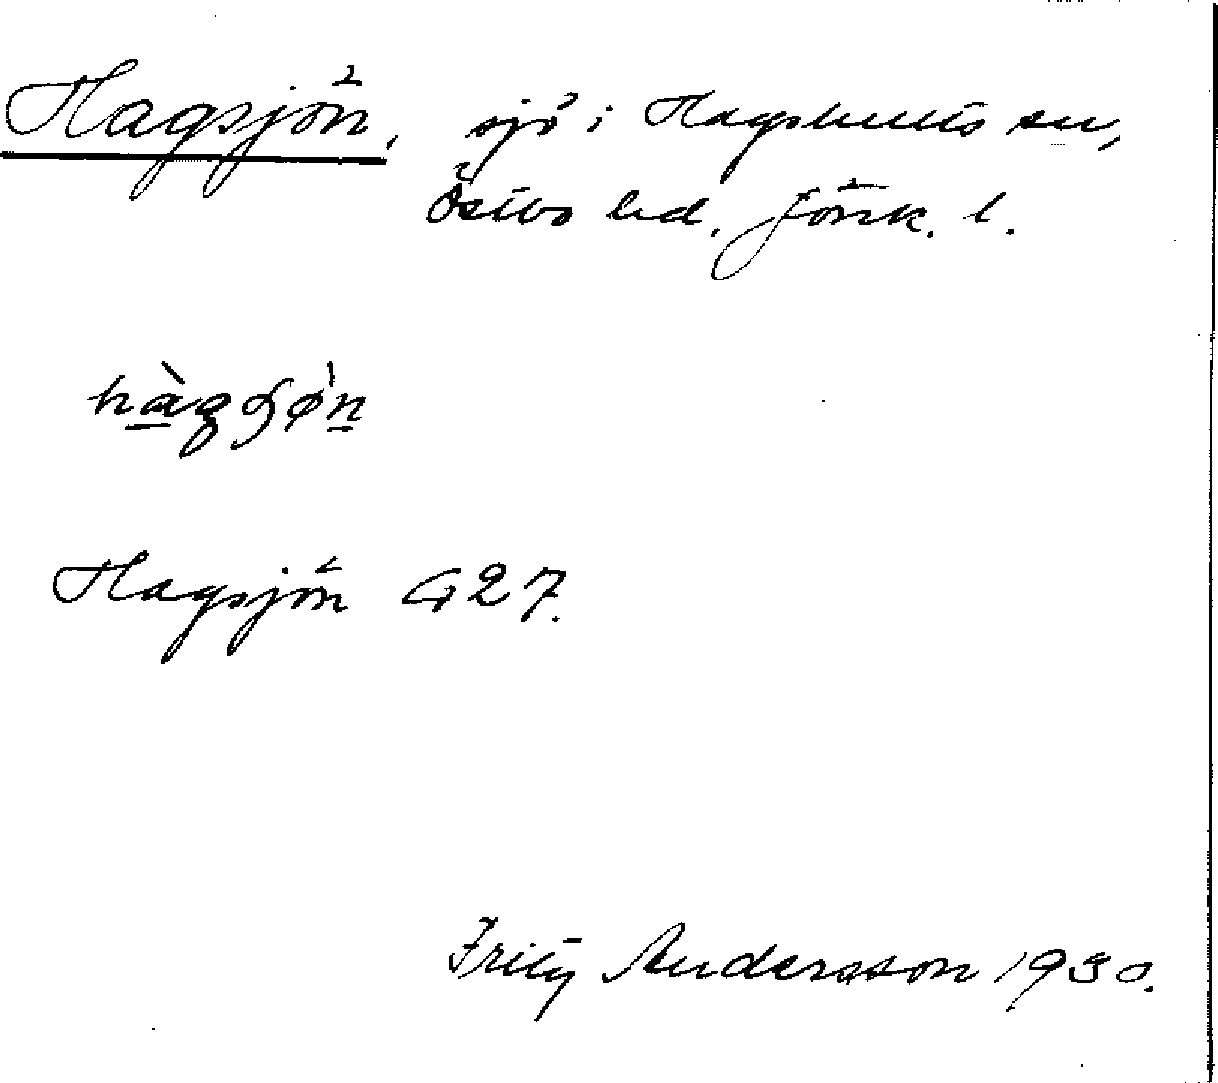 Hagsjön, sjö i Hagshults sn,
Östbo hd. Jönk. l.
hàgʃø̀n
Hagsjön G 27.
Fritz Andersson 1930.